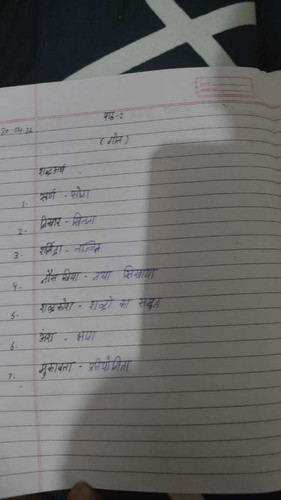 20-04-22
पाठ-2
(मौन)
शब्दअर्थ
1. स्वर्ण - सोना
2. विचार - चिन्ता
3. शर्मिंदा - लज्जित
4. - नया सिखाया
5. शब्दकोश - शब्दों का समूह
6. अंश - भाग
7. मुकाबला - प्रतियोगिता